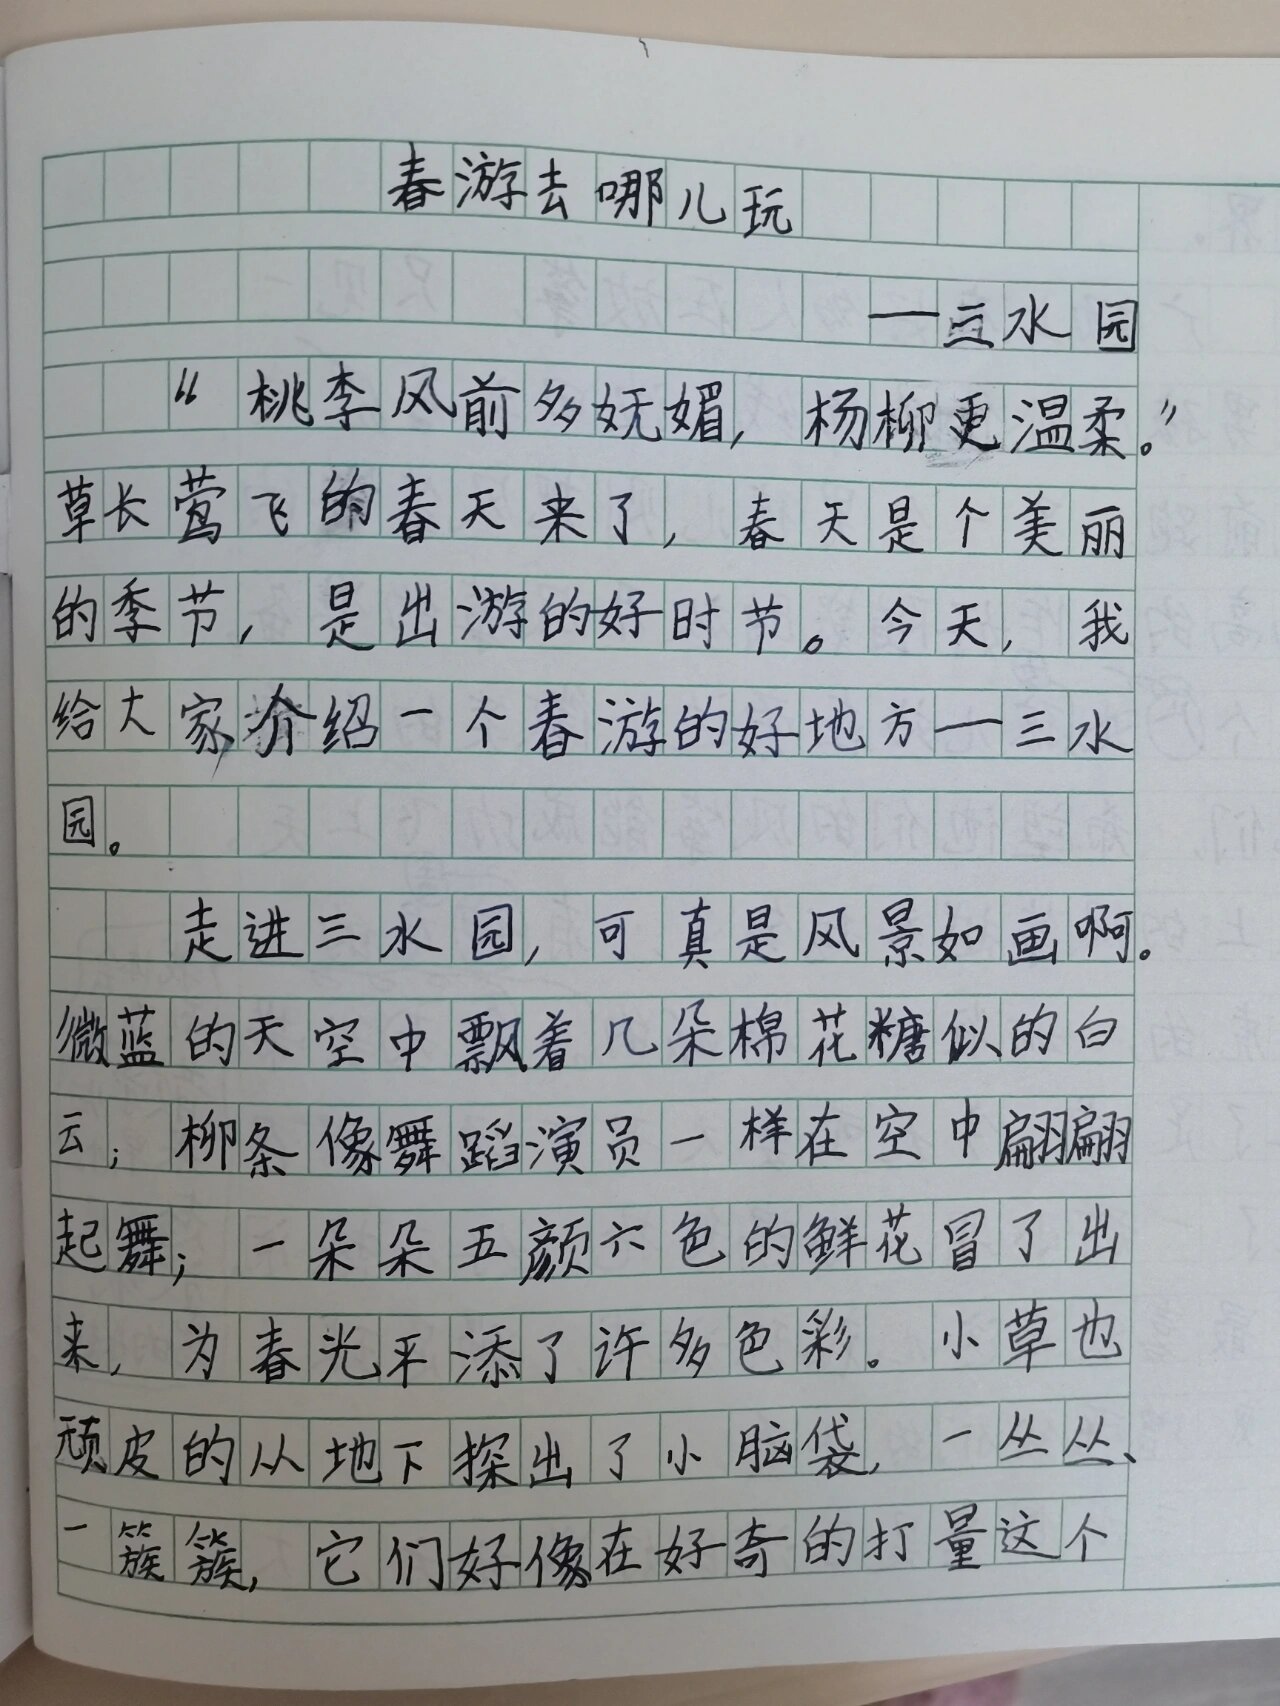 春游去哪儿玩
——三水园
“桃李风前多妩媚，杨柳更温柔。”
草长莺飞的春天来了，春天是个美丽
的季节，是出游的好时节。今天，我
给大家介绍一个春游的好地方——三水
园。
走进三水园，可真是风景如画啊。
微蓝的天空中飘着几朵棉花糖似的白
云；柳条像舞蹈演员一样在空中翩翩
起舞；一朵朵五颜六色的鲜花冒了出
来，为春光平添了许多色彩。小草也
顽皮的从地下探出了小脑袋，一丛丛、
一簇簇，它们好像在好奇的打量这个